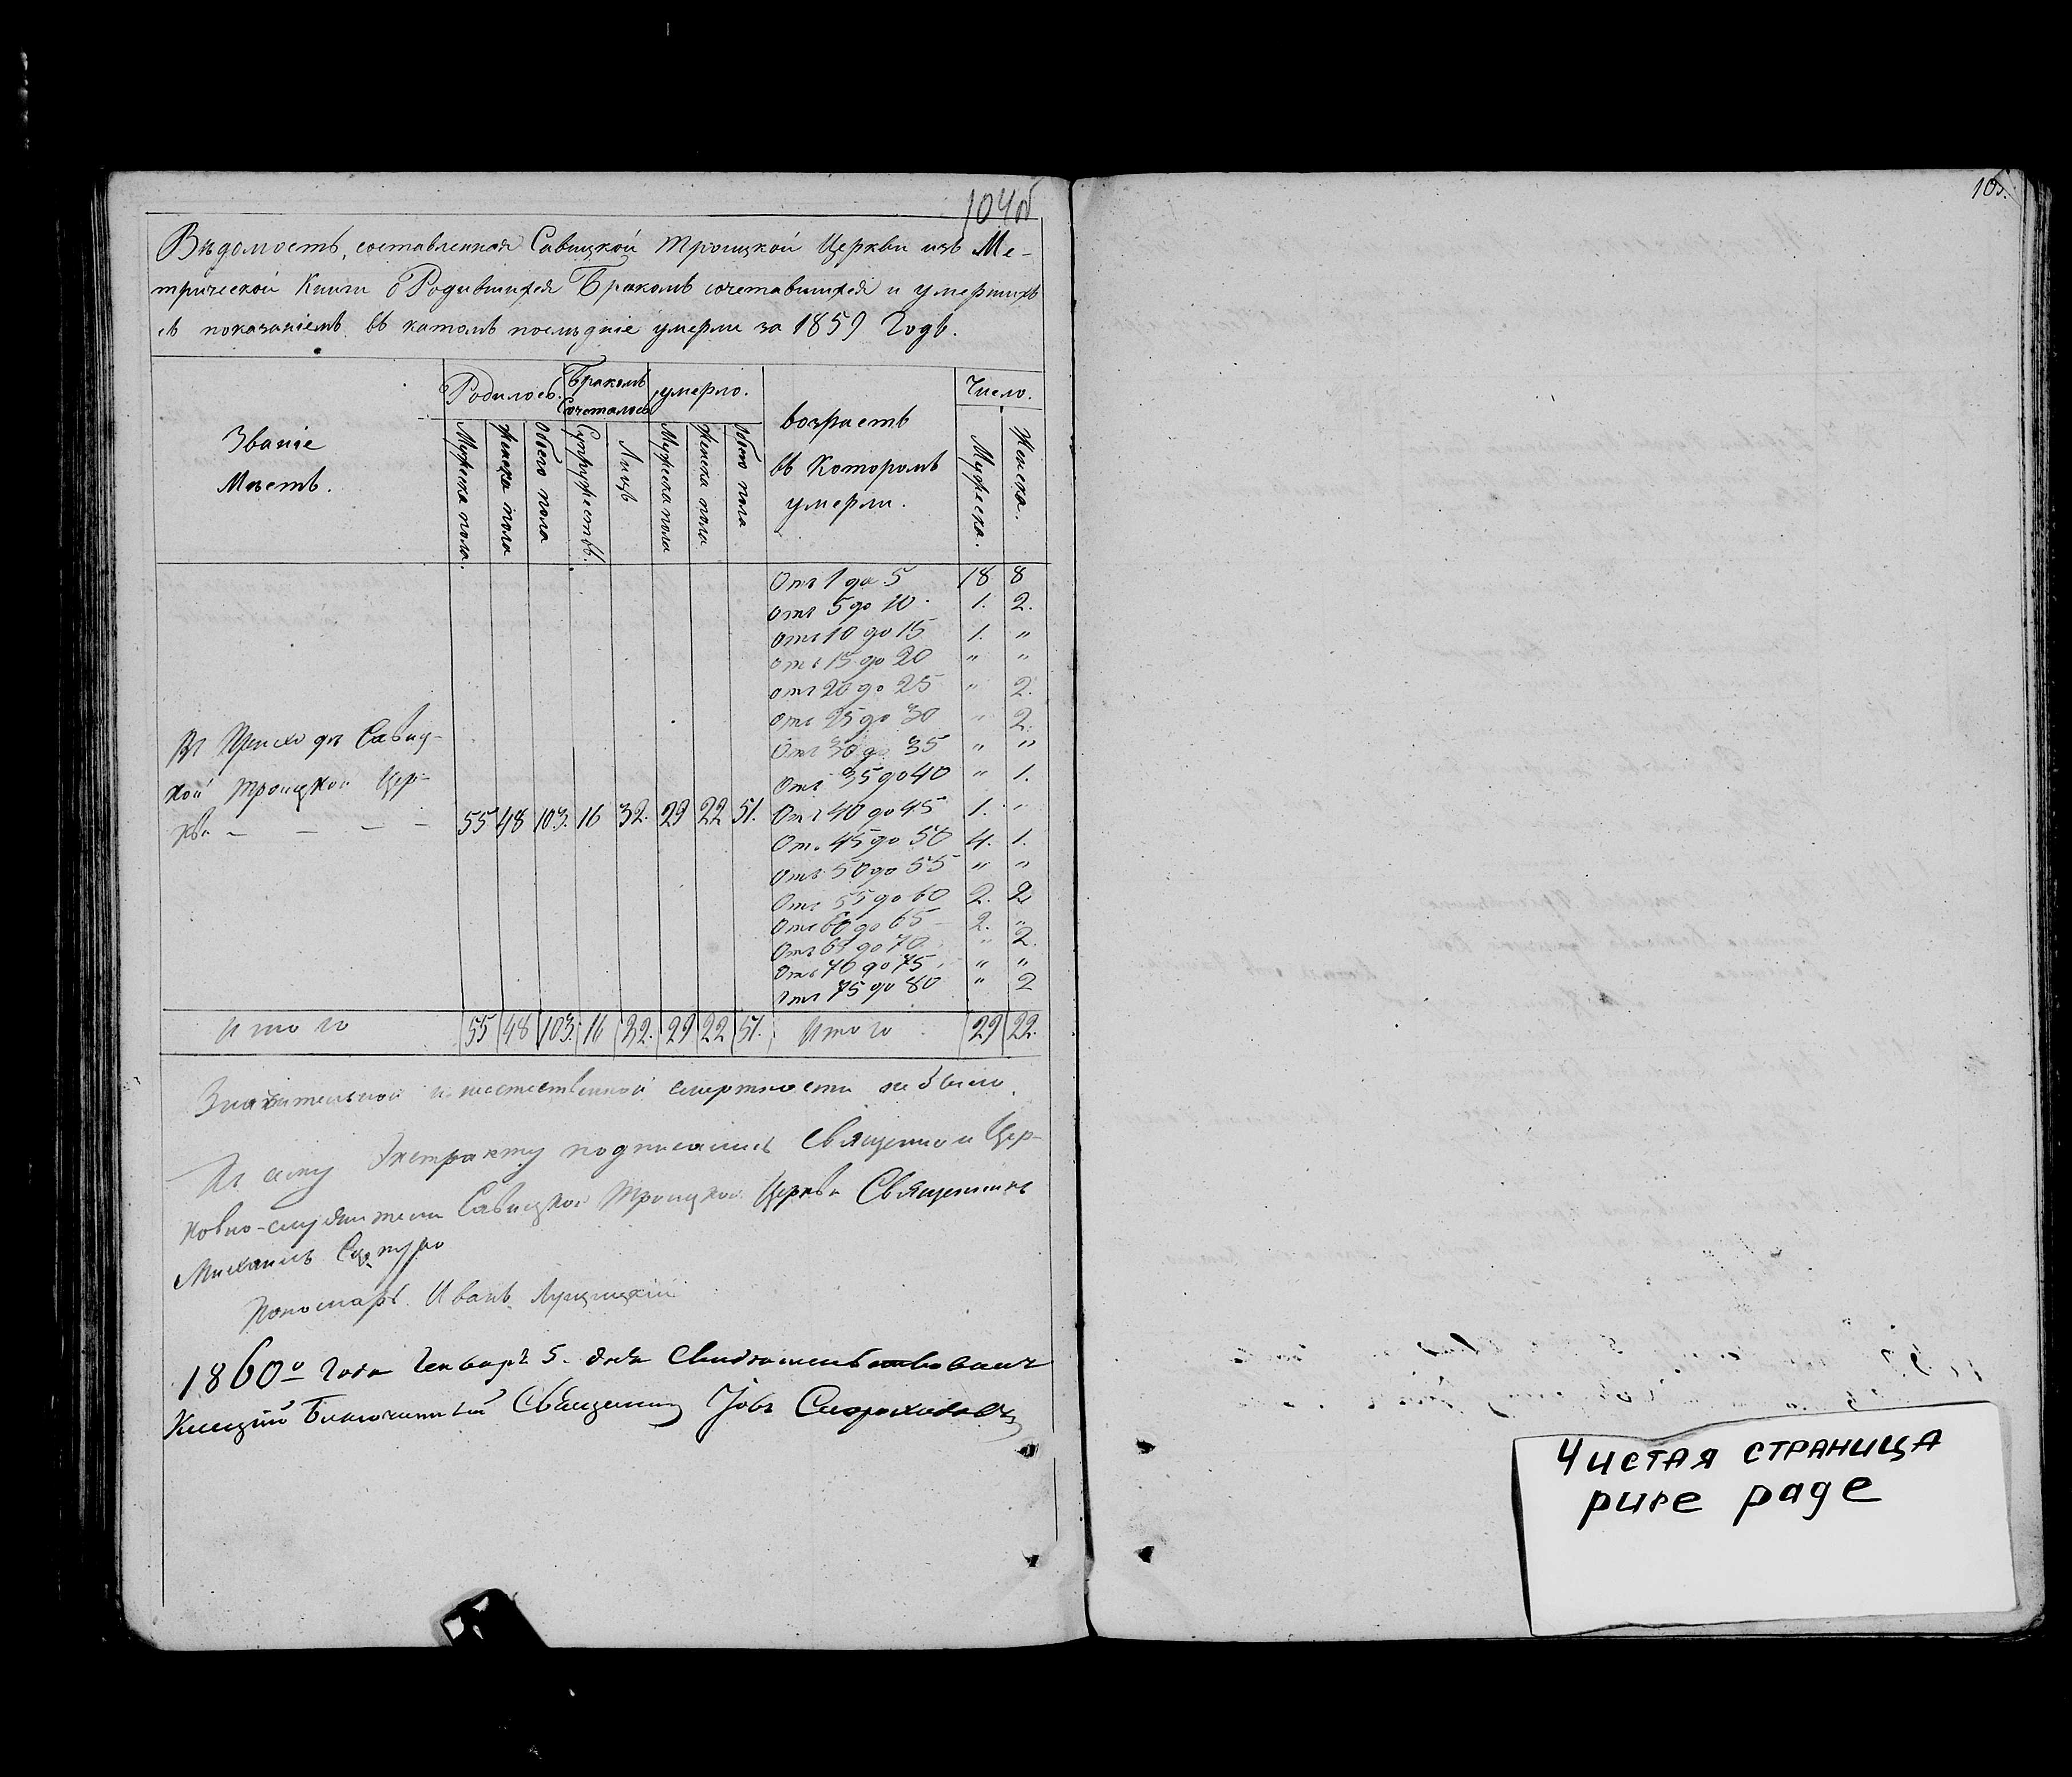 104об
105.
Вѣдомость, составленная Савицкой Троицкой Церкви изъ Ме-
трической Книги о Родившихся Бракомъ сочетавшихся и умершихъ
съ показаніемъ въ катомъ послѣдніе умерли за 1859 Годъ.
Званіе
Мѣстъ.
Родилось.
Бракомъ
Сочеталось
умерло.
возрастъ
въ Которомъ
умерли.
Число.
Мужеска пола.
Женска пола
Обоего пола
Супружествъ.
Лицъ
Мужеска пола
Женска пола
Обоего пола
Мужеска.
Женска.
Отъ 1 до 5 18 8
Отъ 5 до 10 1. 2.
Отъ 10 до 15 1. "
Отъ 15 до 20 " "
Отъ 20 до 25 " 2.
Отъ 25 до 30 " 2.
Отъ 30 до 35 " "
Отъ 35 до 40 " 1.
Отъ 40 до 45 1. "
Отъ 45 до 50 4. 1.
Отъ 50 до 55 " "
Отъ 55 до 60 2. 2
Отъ 60 до 65 2. "
Отъ 65 до 70 " 2.
Отъ 70 до 75 " "
Отъ 75 до 80 " 2
Въ Приходѣ Савиц-
кой Троицкой Цер-
кви - - - - 55 48 103. 16 32. 29 22 51.
Итого 55 48 103. 16 32. 29 22 51. Итого 29 22.
Значительной смертности не было.
Къ сему Экстракту подписались Священно и Цер-
ковно-служители Савицкой Троицкой Церкви Священникъ
Михаилъ
Пономарь Иванъ
1860го Года Генваря 5. дня Свидѣтельствовалъ
Клецкій Благочинный Священникъ Іовъ
Чистая страница
pure page